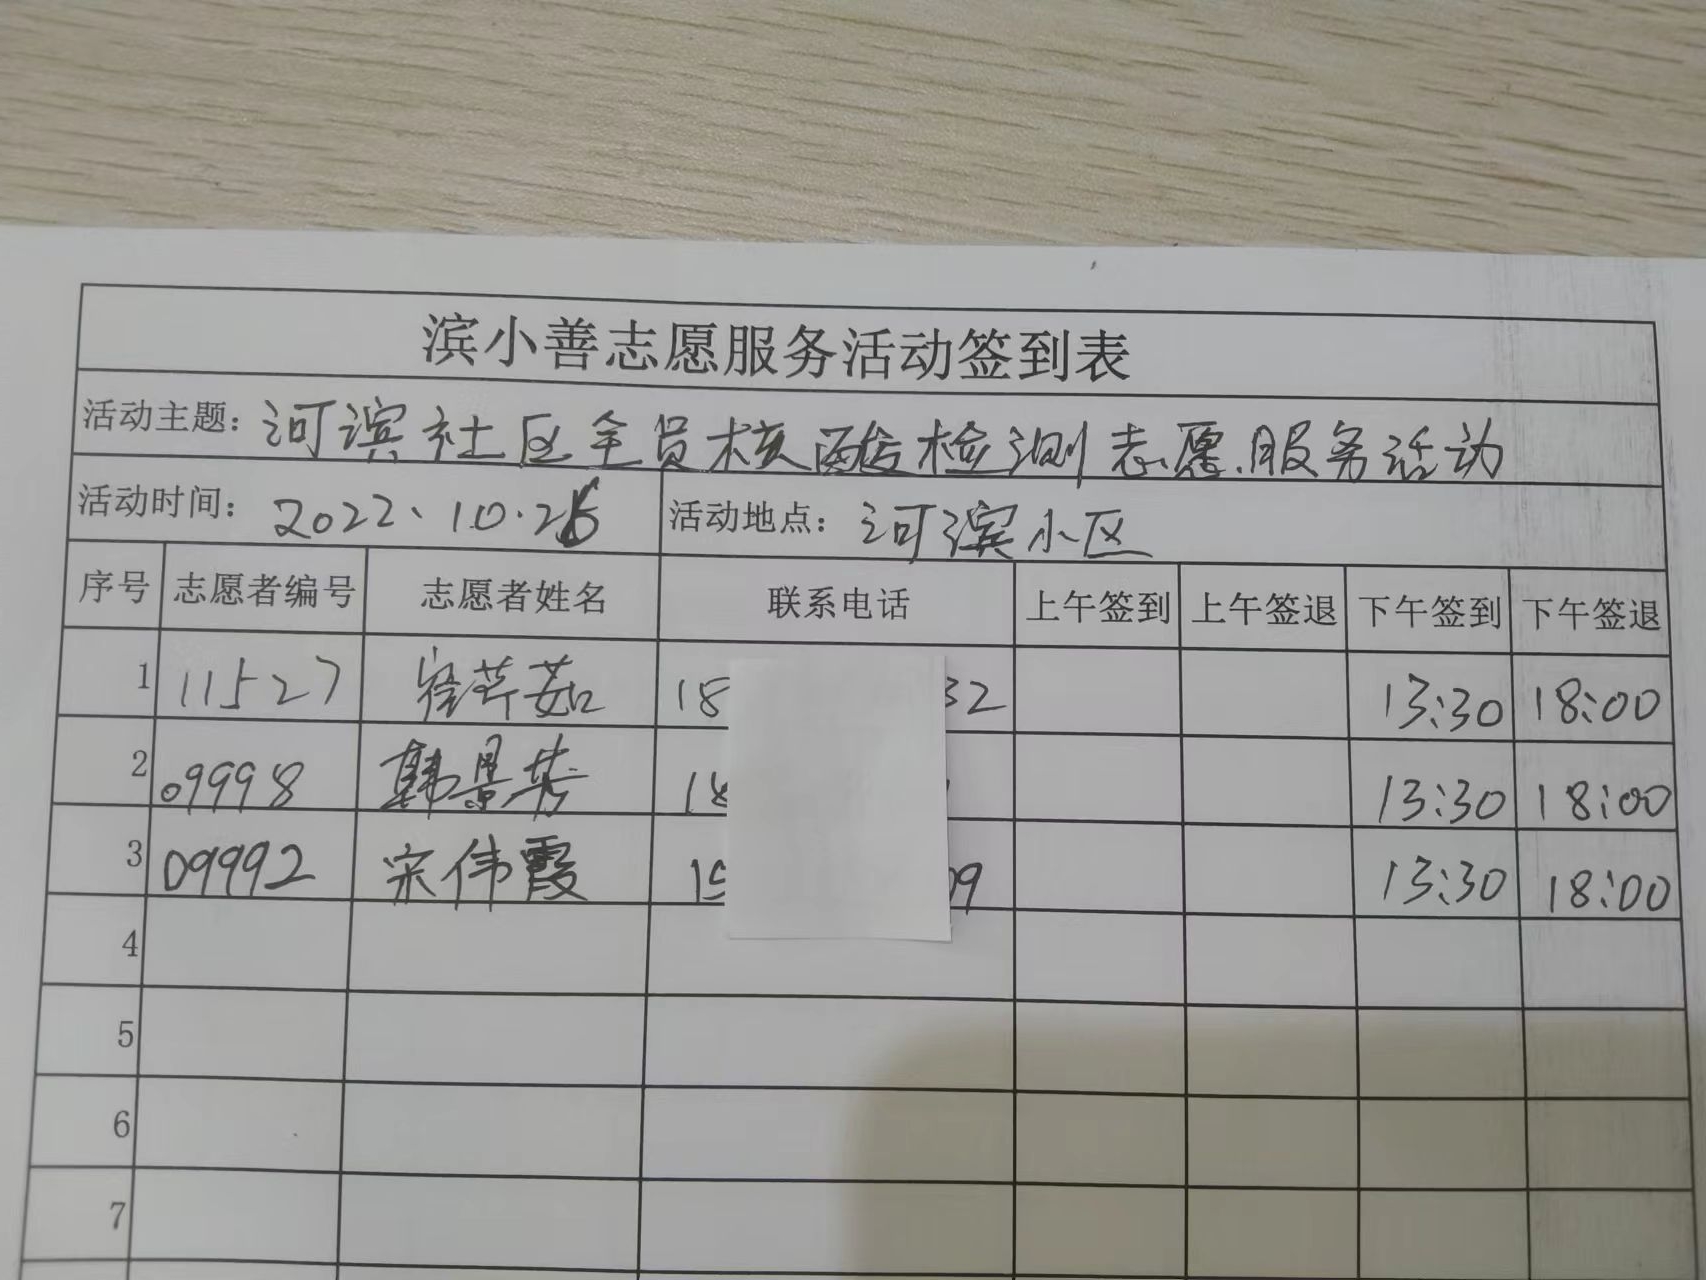 滨小善志愿服务活动签到表
活动主题: 河滨社区全员核酸检测志愿服务活动
活动时间: 2022、10.26 活动地点: 河滨小区
序号 志愿者编号 志愿者姓名 联系电话 上午签到 上午签退 下午签到 下午签退
1 11527 徐芹茹 18 32 13:30 18:00
2 09998 韩景芳 18 13:30 18:00
3 09992 宋伟霞 15 09 13:30 18:00
4
5
6
7